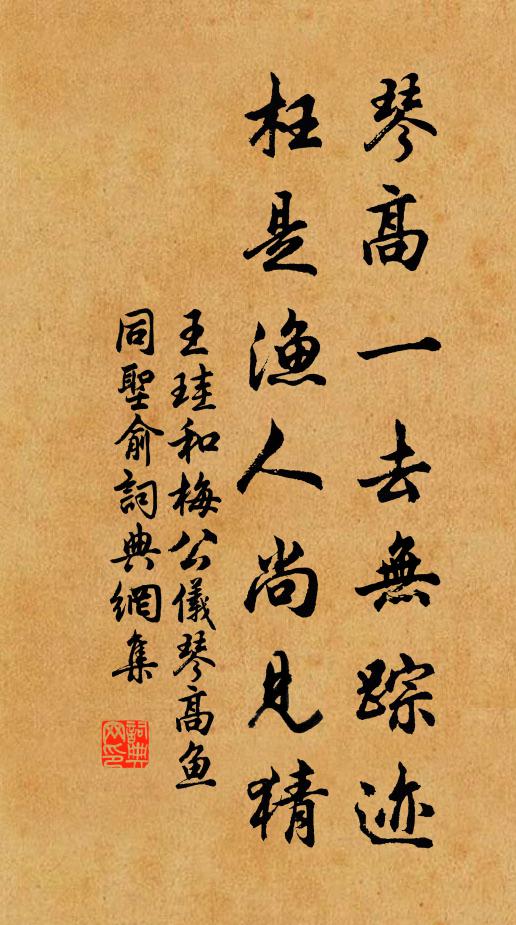 琴高一去無踪迹
枉是漁人尚見猜
王珪和梅公儀琴高魚
同聖俞詞典網集
詞典網印